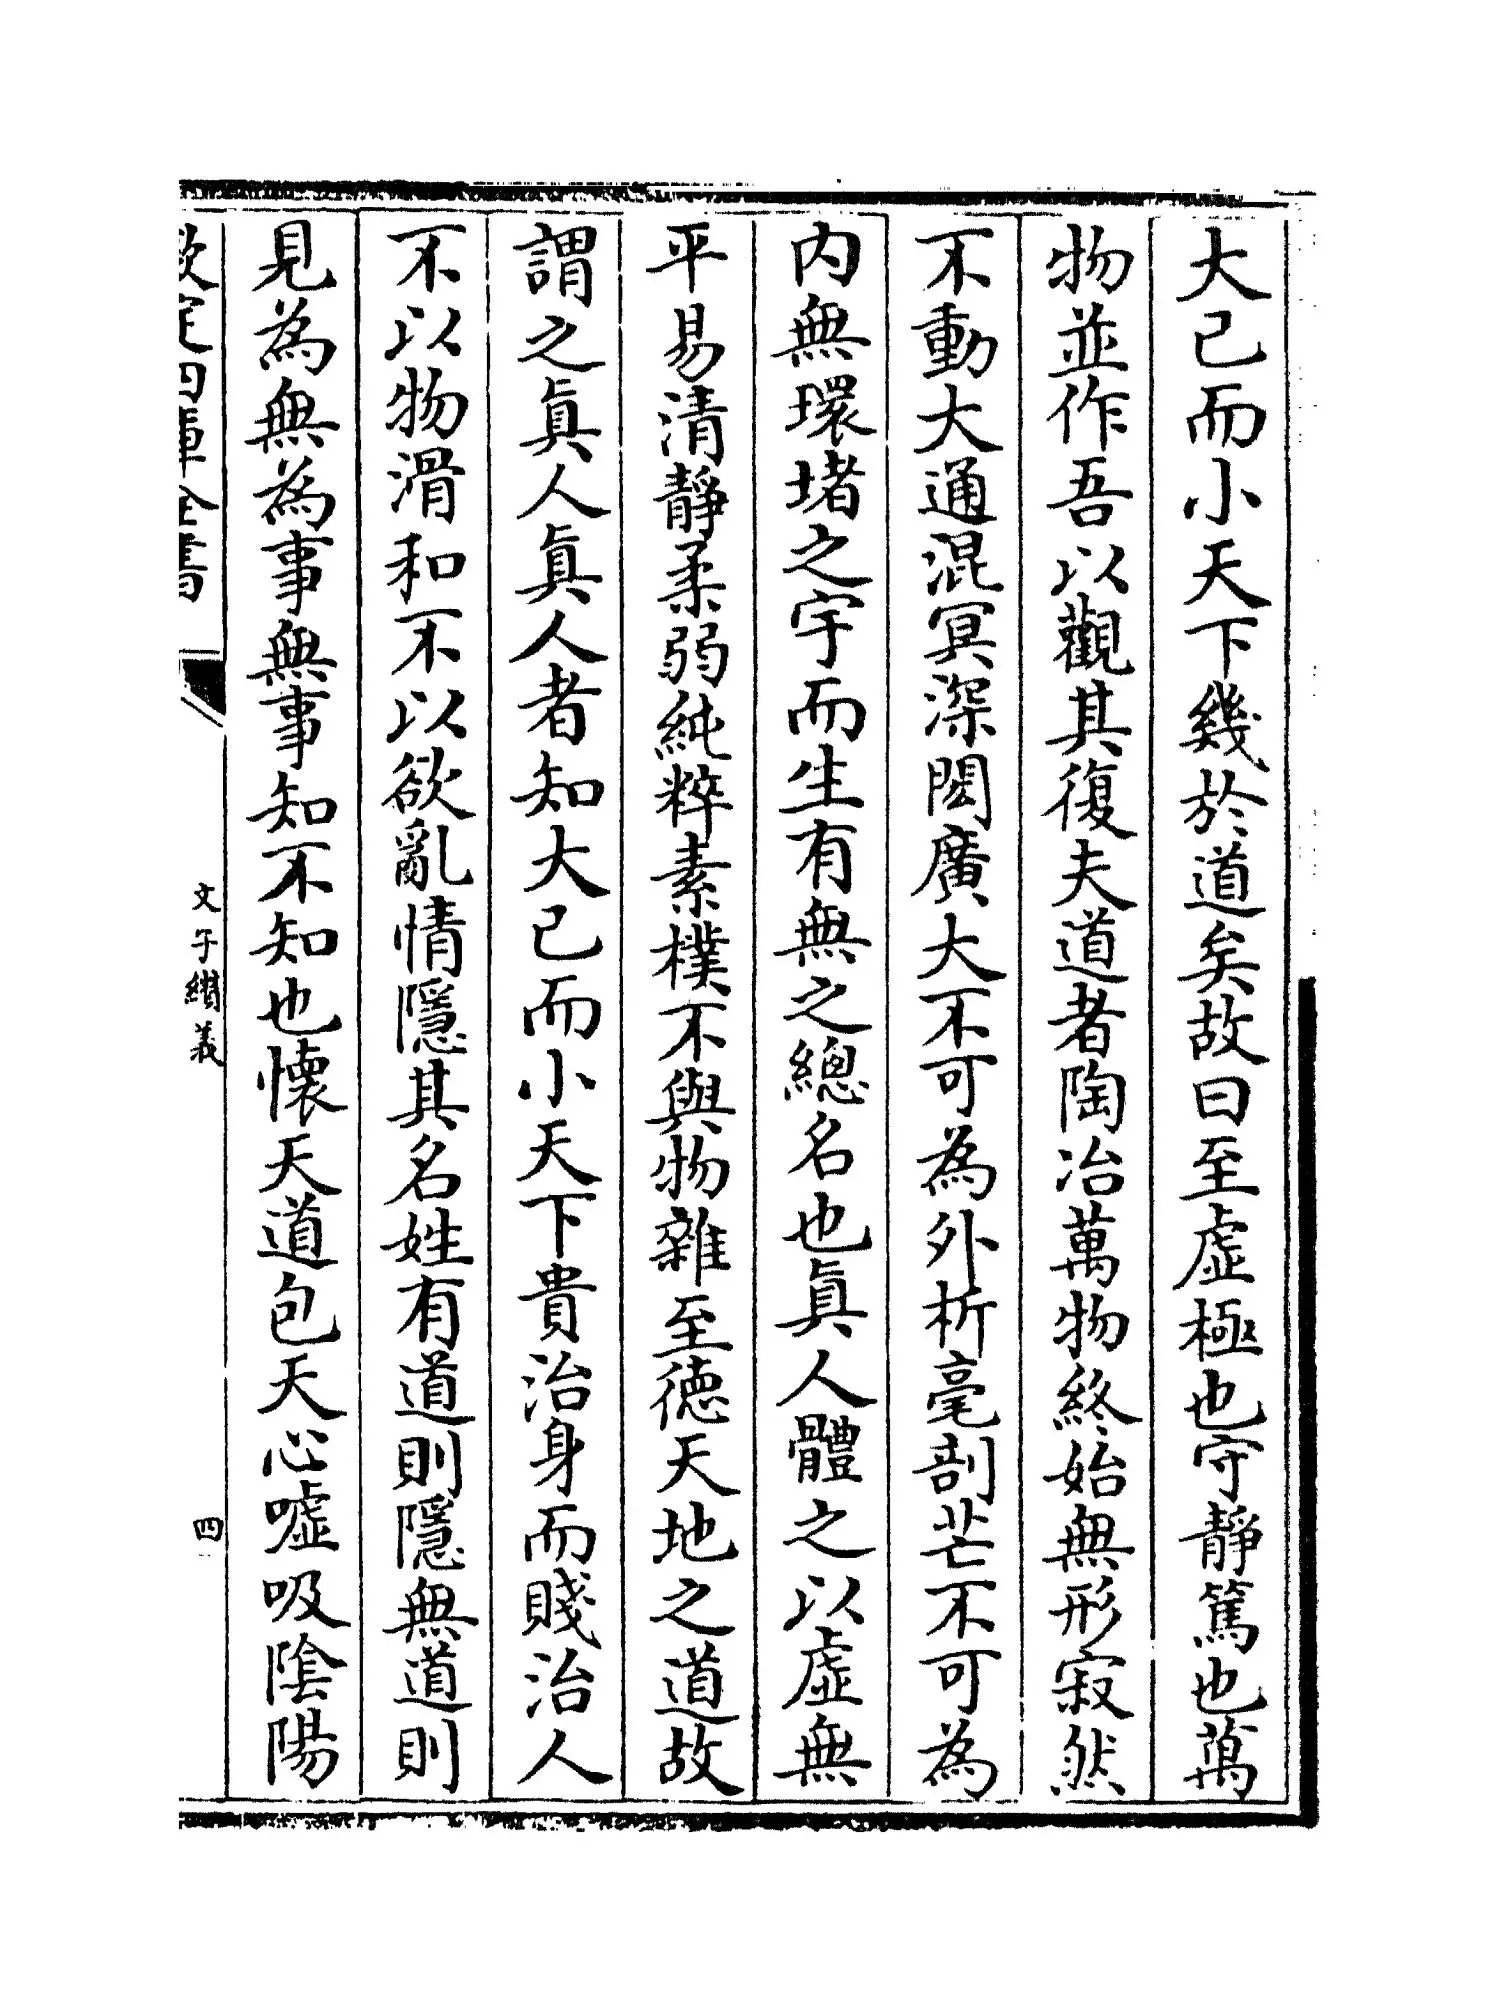 大已而小天下幾於道矣故曰至虛極也守靜篤也萬
物並作吾以觀其復夫道者陶冶萬物終始無形寂然
不動大通混冥深閎廣大不可為外析毫剖芒不可為
内無環堵之宇而生有無之總名也眞人體之以虛無
平易清靜柔弱純粹素樸不與物雜至德天地之道故
謂之眞人眞人者知大已而小天下貴治身而賤治人
不以物滑和不以欲亂情隱其名姓有道則隱無道則
見為無為事無事知不知也懷天道包天心噓吸陰陽
欽定四庫全書
文子纘義
四